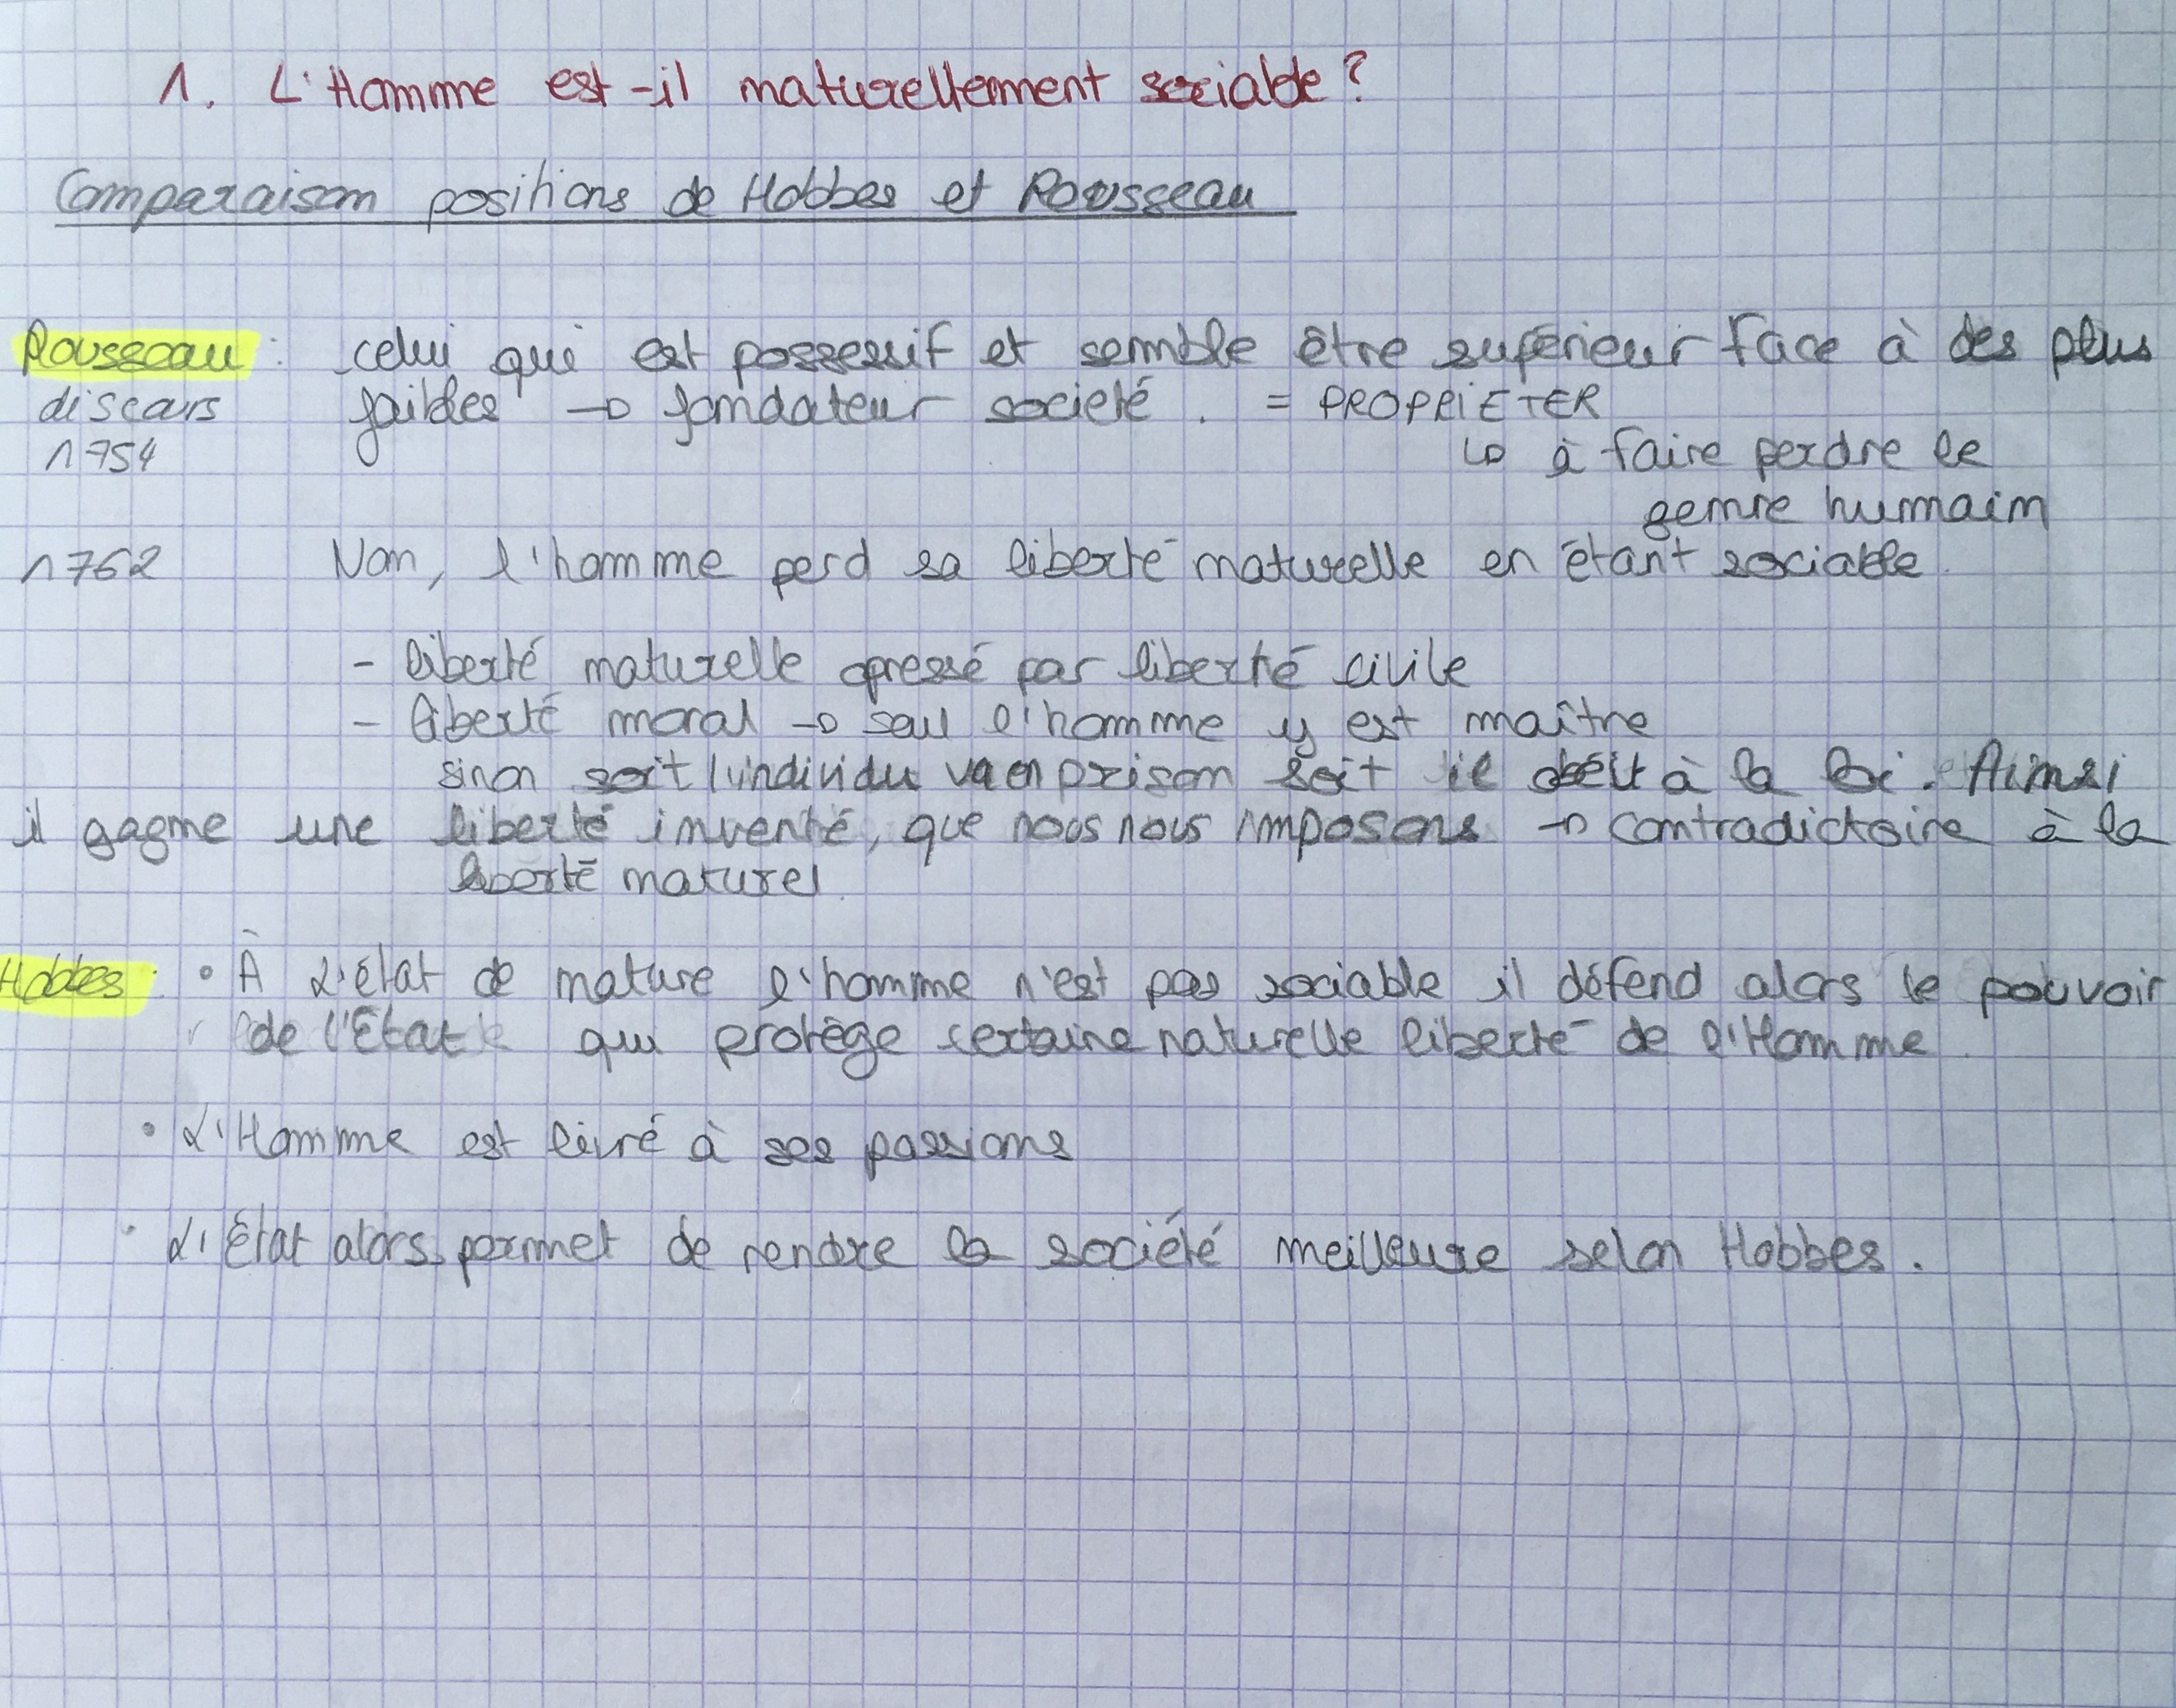 1. L'Homme est-il naturellement sociable ?
Comparaison positions de Hobbes et Rousseau
Rousseau : celui qui est possessif et semble être supérieur face à des plus
discours faibles → fondateur societé . = PROPRIETER
1754 ↳ à faire perdre le
genre humain
1762 Non, l'homme perd sa liberté naturelle en étant sociable.
- liberté naturelle opressé par liberté civile
- liberté moral → seul l'homme y est maître
sinon soit l'individu va en prison soit il obéit à la loi. Ainsi
il gagne une liberté inventé, que nous nous imposons → contradictoire à la
liberté naturel.
Hobbes : • À L'état de nature l'homme n'est pas sociable il défend alors le pouvoir
de l'État qui protège certaine naturelle liberté de l'Homme.
• L'Homme est livré à ses passions
• L'État alors permet de rendre la société meilleure selon Hobbes.